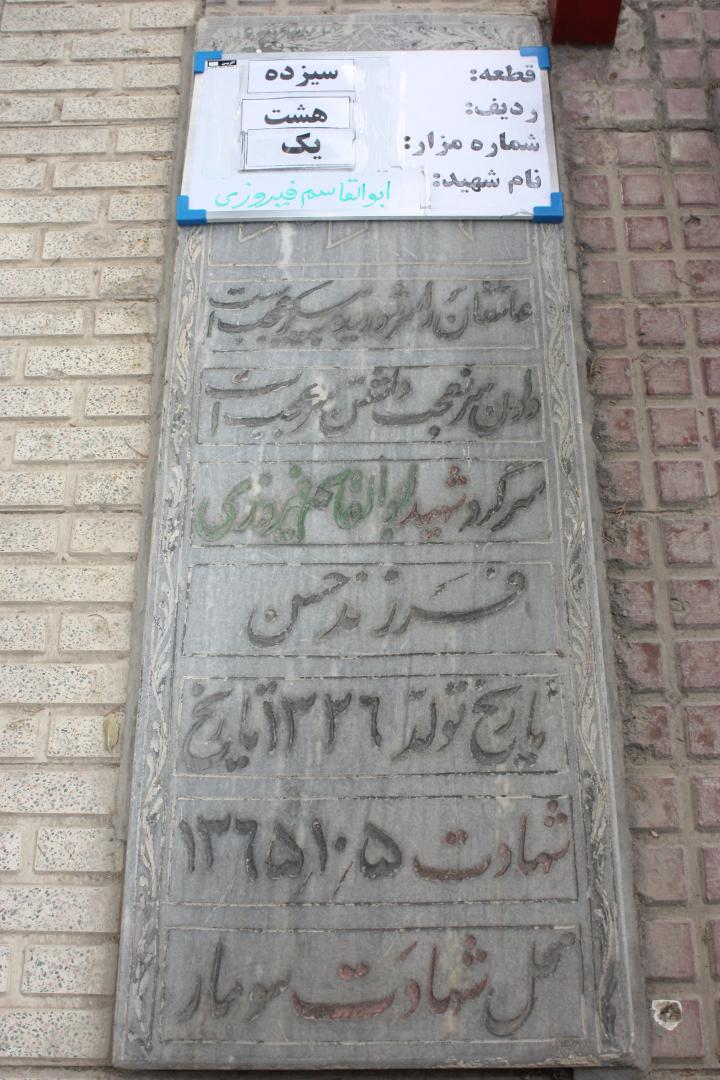 قطعه: سیزده
ردیف: هشت
شماره مزار: یک
نام شهید: ابوالقاسم فیروزی
عاشقان را سر شوریده به پیکر عجب است
دادن سر نه عجب داشتن سر عجب است
سرگرد شهید ابوالقاسم فیروزی
فرزند حسن
تاریخ تولد ۱۳۲۶ تاریخ
شهادت ۱۳۶۵٫۱۰٫۵
محل شهادت سومار